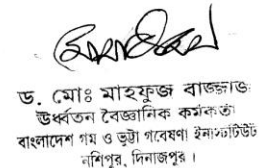 ড. মোঃ মাহফুজ বাজ্জাজ
ঊর্ধ্বতন বৈজ্ঞানিক কর্মকর্তা
বাংলাদেশ গম ও ভুট্টা গবেষণা ইনস্টিটিউট
নশিপুর, দিনাজপুর।